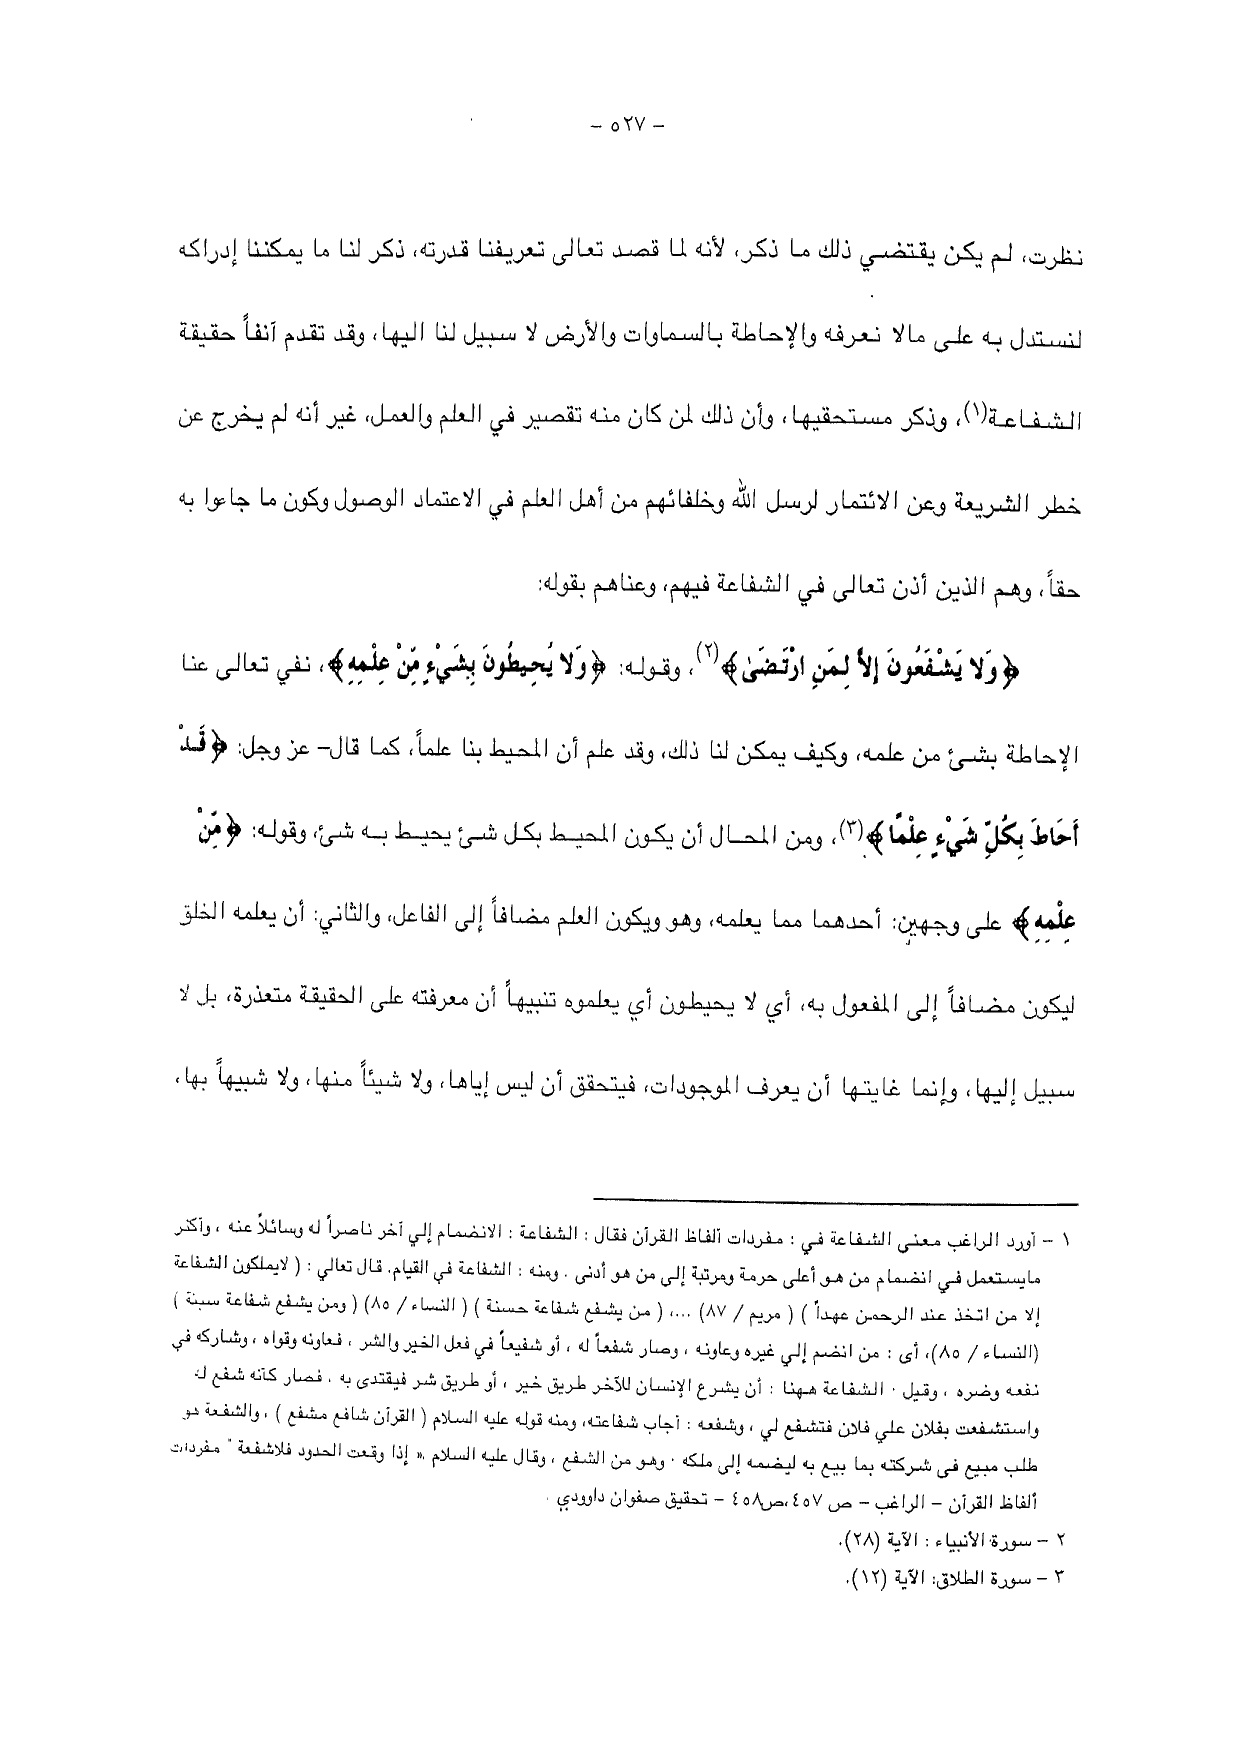 - ٥٢٧ -
نظرت، لم يكن يقتضي ذلك ما ذكر، لأنه لما قصد تعالى تعريفنا قدرته، ذكر لنا ما يمكننا إدراكه
لنستدل به على مالا نعرفه والإحاطة بالسماوات والأرض لا سبيل لنا اليها، وقد تقدم آنفاً حقيقة
الشفاعة(١)، وذكر مستحقيها، وأن ذلك لمن كان منه تقصير في العلم والعمل، غير أنه لم يخرج عن
خطر الشريعة وعن الائتمار لرسل الله وخلفائهم من أهل العلم في الاعتماد الوصول وكون ما جاءوا به
حقاً، وهم الذين أذن تعالى في الشفاعة فيهم، وعناهم بقوله:
﴿وَلا يَشْفَعُونَ إِلاَّ لِمَنِ ارْتَضَىٰ﴾(٢)، وقوله: ﴿وَلا يُحِيطُونَ بِشَيْءٍ مِّنْ عِلْمِهِ﴾، نفي تعالى عنا
الإحاطة بشئ من علمه، وكيف يمكن لنا ذلك، وقد علم أن المحيط بنا علماً، كما قال- عز وجل: ﴿قَدْ
أَحَاطَ بِكُلِّ شَيْءٍ عِلْمًا﴾(٣)، ومن المحال أن يكون المحيط بكل شئ يحيط به شئ، وقوله: ﴿مِّنْ
عِلْمِهِ﴾ على وجهين: أحدهما مما يعلمه، وهو ويكون العلم مضافاً إلى الفاعل، والثاني: أن يعلمه الخلق
ليكون مضافاً إلى المفعول به، أي لا يحيطون أي يعلموه تنبيهاً أن معرفته على الحقيقة متعذرة، بل لا
سبيل إليها، وإنما غايتها أن يعرف الموجودات، فيتحقق أن ليس إياها، ولا شيئاً منها، ولا شبيهاً بها،
١ – أورد الراغب معنى الشفاعة في : مفردات ألفاظ القرآن فقال : الشفاعة : الانضمام إلي آخر ناصراً له وسائلاً عنه ، وأكثر
مايستعمل في انضمام من هو أعلى حرمة ومرتبة إلى من هو أدنى . ومنه : الشفاعة في القيام. قال تعالي : ( لايملكون الشفاعة
إلا من اتخذ عند الرحمن عهداً ) ( مريم / ٨٧) ...، ( من يشفع شفاعة حسنة ) ( النساء/ ٨٥) ( ومن يشفع شفاعة سيئة )
(النساء / ٨٥)، أى : من انضم إلي غيره وعاونه ، وصار شفعاً له ، أو شفيعاً في فعل الخير والشر ، فعاونه وقواه ، وشاركه في
نفعه وضره ، وقيل . الشفاعة ههنا : أن يشرع الإنسان للآخر طريق خير ، أو طريق شر فيقتدى به ، فصار كأنه شفع له
واستشفعت بفلان علي فلان فتشفع لي ، وشفعه : أجاب شفاعته، ومنه قوله عليه السلام ( القرآن شافع مشفع ) ، والشفعة هو
طلب مبيع فى شركته بما بيع به ليضمه إلى ملكه . وهو من الشفع ، وقال عليه السلام « إذا وقعت الحدود فلاشفعة " مفردات
ألفاظ القرآن – الراغب – ص ٤٥٧،ص٤٥٨ – تحقيق صفوان داوودي .
٢ – سورة الأنبياء : الآية (٢٨).
٣ – سورة الطلاق: الآية (١٢).